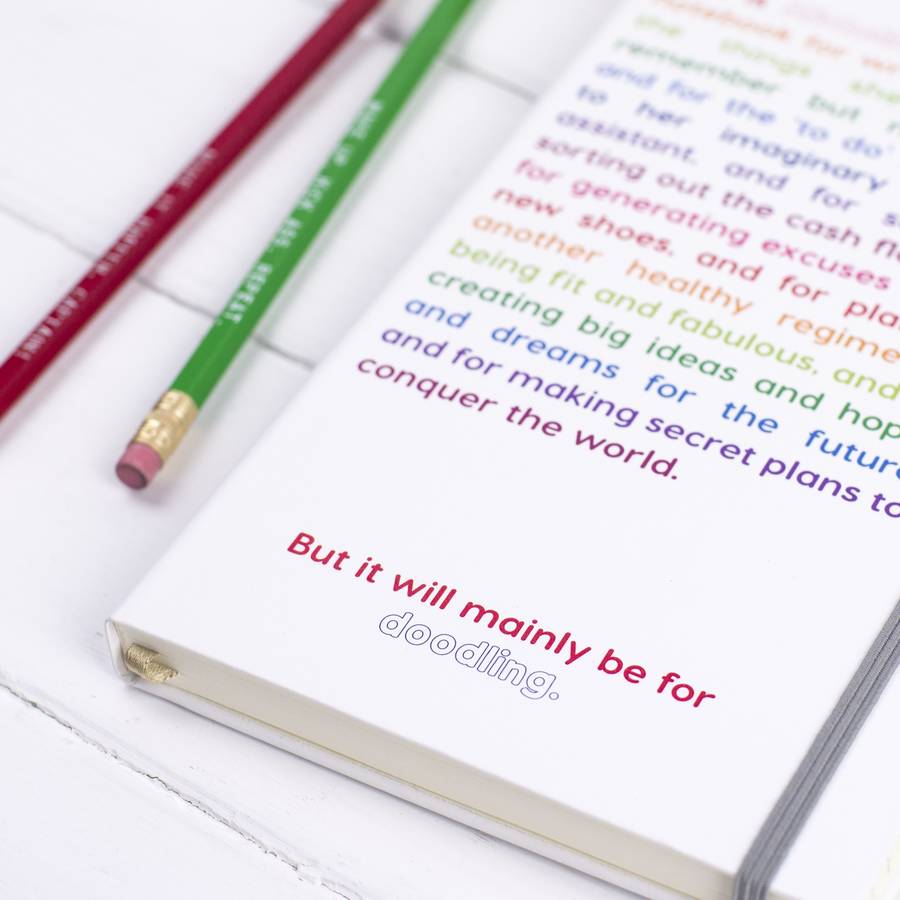 notebook for
the things she
remember but
and for the 'to do'
to her imaginary
assistant, and for
sorting out the cash
for generating excuses
new shoes, and for
another healthy regime
being fit and fabulous, and
creating big ideas and
and dreams for the future
and for making secret plans to
conquer the world.
But it will mainly be for
doodling.
WAKE UP. KICK ASS. REPEAT.